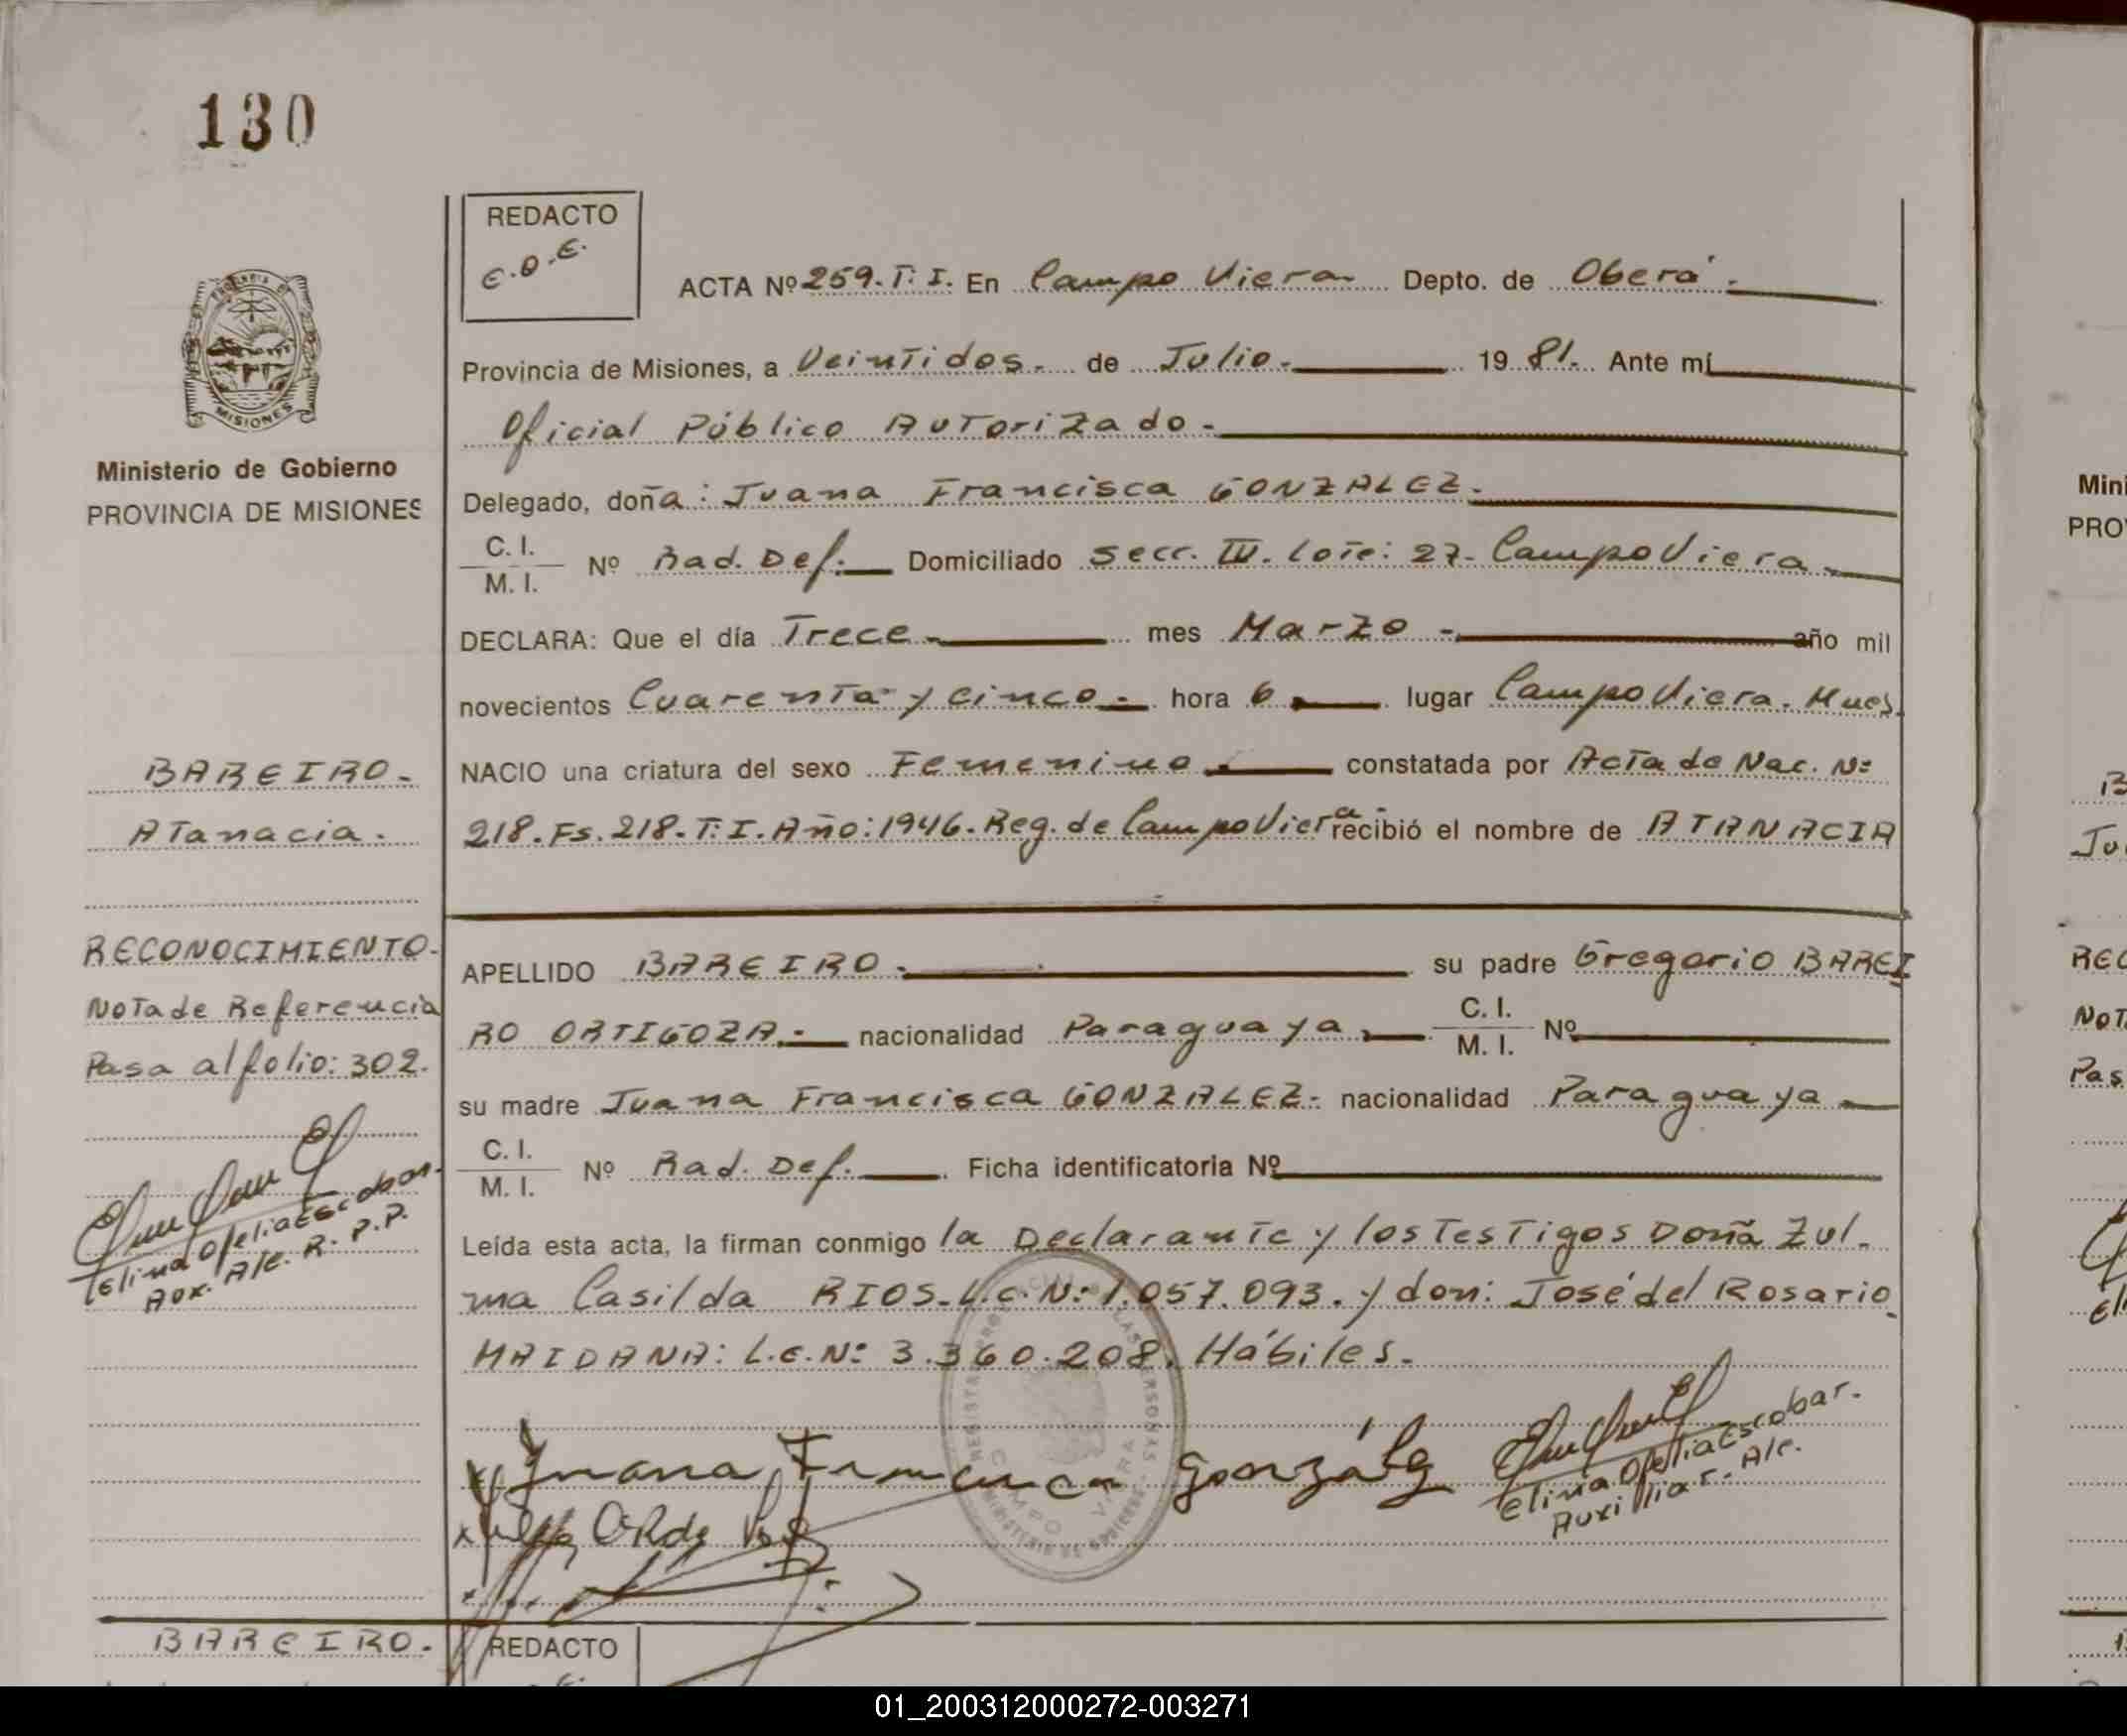 130
REDACTO
E.O.E.
ACTA Nº 259. T: I. En Campo Viera Depto. de Oberá.
Provincia de Misiones, a Veintidos. de Julio. 19 81. Ante mí
Oficial Público Autorizado.
Ministerio de Gobierno
PROVINCIA DE MISIONES
Delegado, doña: Juana Francisca GONZALEZ.
C. I.
M. I. Nº Rad. Def. Domiciliado Secc. IV. Lote: 27. Campo Viera.
DECLARA: Que el día Trece mes Marzo año mil
novecientos Cuarenta y cinco. hora 6 lugar Campo Viera. Mnes.
NACIO una criatura del sexo Femenino constatada por Acta de Nac. Nº
218. Fs. 218. T: I. Año: 1946. Reg. de Campo Viera recibió el nombre de ATANACIA
APELLIDO BAREIRO. su padre Gregorio BAREI
RO ORTIGOZA. nacionalidad Paraguaya C. I. M. I. Nº
su madre Juana Francisca GONZALEZ. nacionalidad Paraguaya
C. I.
M. I. Nº Rad. Def. Ficha identificatoria Nº
Leída esta acta, la firman conmigo la Declarante y los Testigos Doña Zul.
ma Casilda RIOS. L.C. Nº 1.057.093. y don: José del Rosario
MAIDANA: L.E. Nº 3.360.208. Hábiles.
Juana Francisca González
Elina Ofelia Escobar.
Auxiliar. A/c.
BAREIRO.
Atanacia.
RECONOCIMIENTO.
Nota de Referencia
Pasa al folio: 302.
Elina Ofelia Escobar.
Aux. A/c. R. P. P.
MISIONES
CAMPO VIERA
BAREIRO.
REDACTO
Mini
PRO
Ju
REC
Not
Pas
01_200312000272-003271